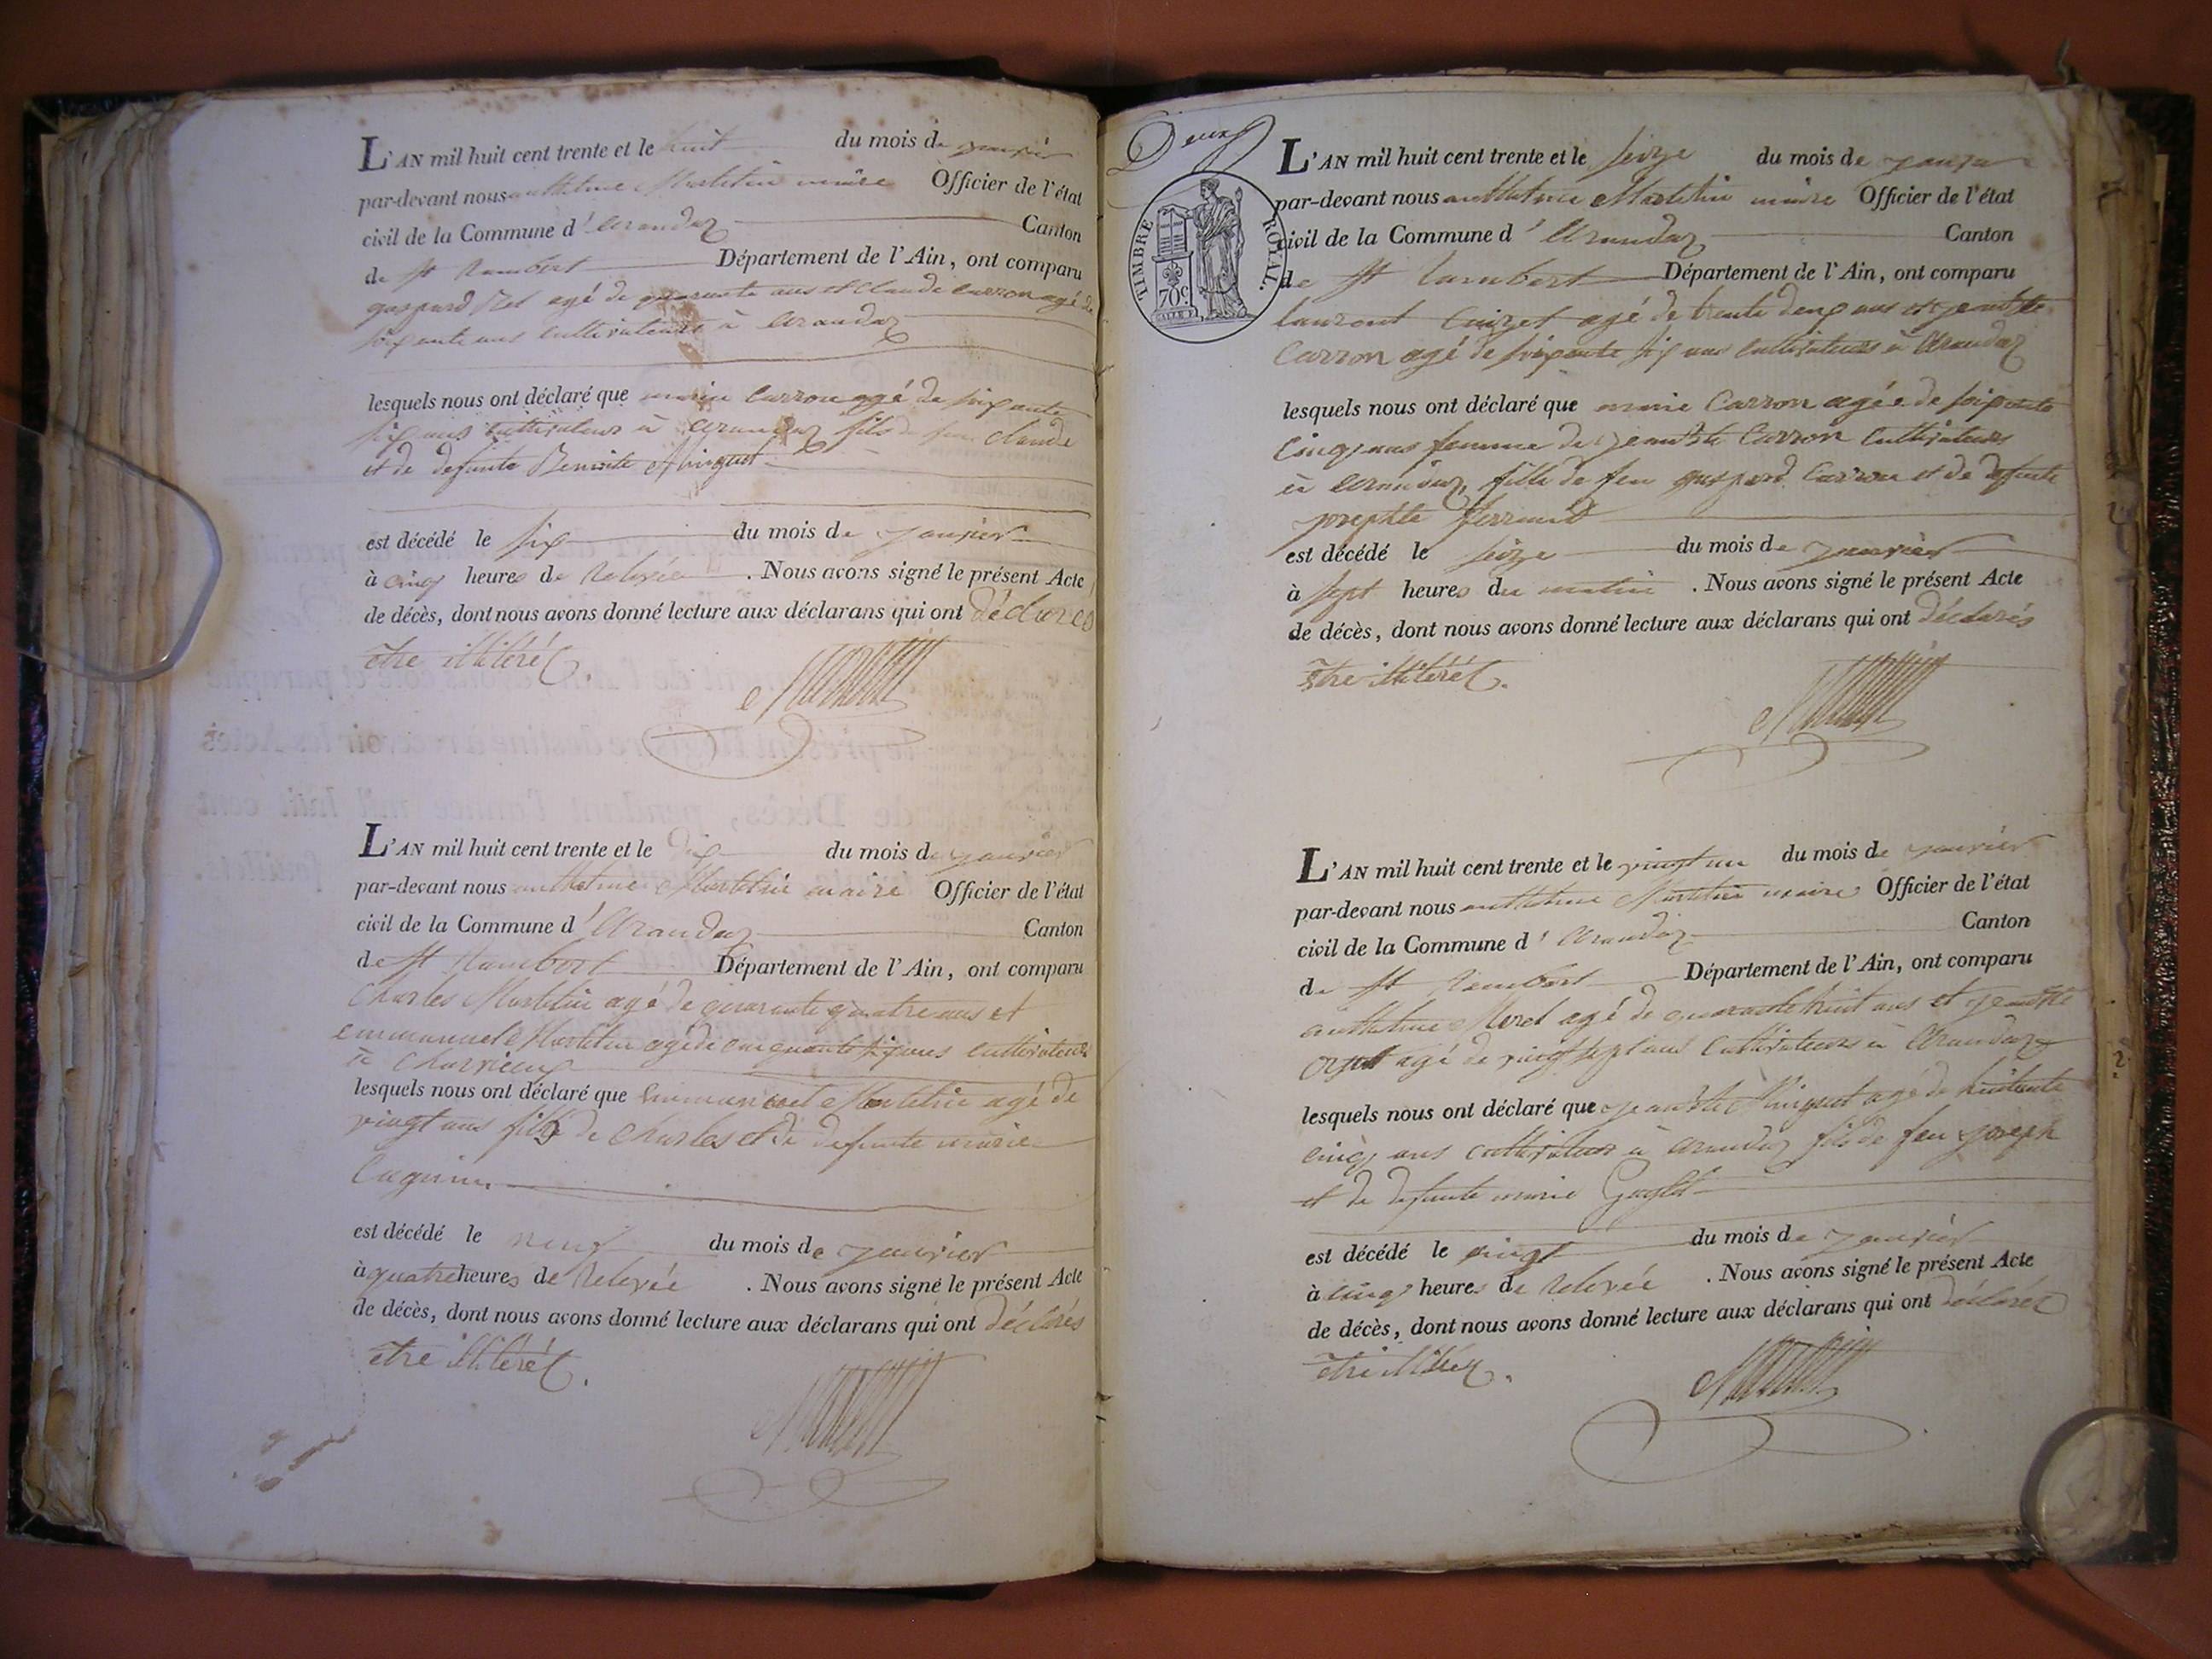 L'AN mil huit cent trente et le huit du mois de janvier
par-devant nous anthelme Martelin maire Officier de l'état
civil de la Commune d'Arandaz Canton
de St Rambert Département de l'Ain, ont comparu
gaspard agé de quarante ans et Claude Carron agé de
soixante ans cultivateurs à Arandaz
lesquels nous ont déclaré que Carron agé de soixante
six ans cultivateur à Arandaz fils de feu Claude
et de defunte Benoite
est décédé le six du mois de janvier
à cinq heures de Relevée . Nous avons signé le présent Acte
de décès, dont nous avons donné lecture aux déclarans qui ont déclarés
être illiteréz.
L'AN mil huit cent trente et le Dix du mois de janvier
par-devant nous anthelme Martelin maire Officier de l'état
civil de la Commune d'Arandaz Canton
de St Rambert Département de l'Ain, ont comparu
Charles Martelin agé de quarante quatre ans et
emmanuel Martelin agé de cinquante six ans cultivateurs
à Charvieux
lesquels nous ont déclaré que Emmanuel Martelin agé de
vingt ans fils de Charles et de defunte marie
est décédé le neuf du mois de janvier
à quatre heures de Relevée . Nous avons signé le présent Acte
de décès, dont nous avons donné lecture aux déclarans qui ont déclarés
être illiteréz.
Deux
TIMBRE ROYAL.
70c
L'AN mil huit cent trente et le seize du mois de janvier
par-devant nous anthelme Martelin maire Officier de l'état
civil de la Commune d'Arandaz Canton
de St Rambert Département de l'Ain, ont comparu
laurent Cuizet agé de trente deux ans et jean Bte
Carron agé de soixante six ans cultivateurs à Arandaz
lesquels nous ont déclaré que marie Carron agée de soixante
Cinq ans femme de jean Bte Carron Cultivateurs
à Arandaz, fille de feu gaspard Carron et de defunte
josephte ferrand
est décédé le seize du mois de janvier
à sept heures du matin . Nous avons signé le présent Acte
de décès, dont nous avons donné lecture aux déclarans qui ont déclarés
être illiteréz.
L'AN mil huit cent trente et le vingt un du mois de janvier
par-devant nous anthelme Martelin maire Officier de l'état
civil de la Commune d'Arandaz Canton
de St Rambert Département de l'Ain, ont comparu
anthelme Morel agé de quarante huit ans et jean Bte
agé de vingt sept ans Cultivateurs à Arandaz
lesquels nous ont déclaré que jean Bte agé de huitante
cinq ans cultivateur à Arandaz fils de feu joseph
et de defunte marie
est décédé le vingt du mois de janvier
à cinq heures de Relevée . Nous avons signé le présent Acte
de décès, dont nous avons donné lecture aux déclarans qui ont déclaréz
être illiteréz.
2